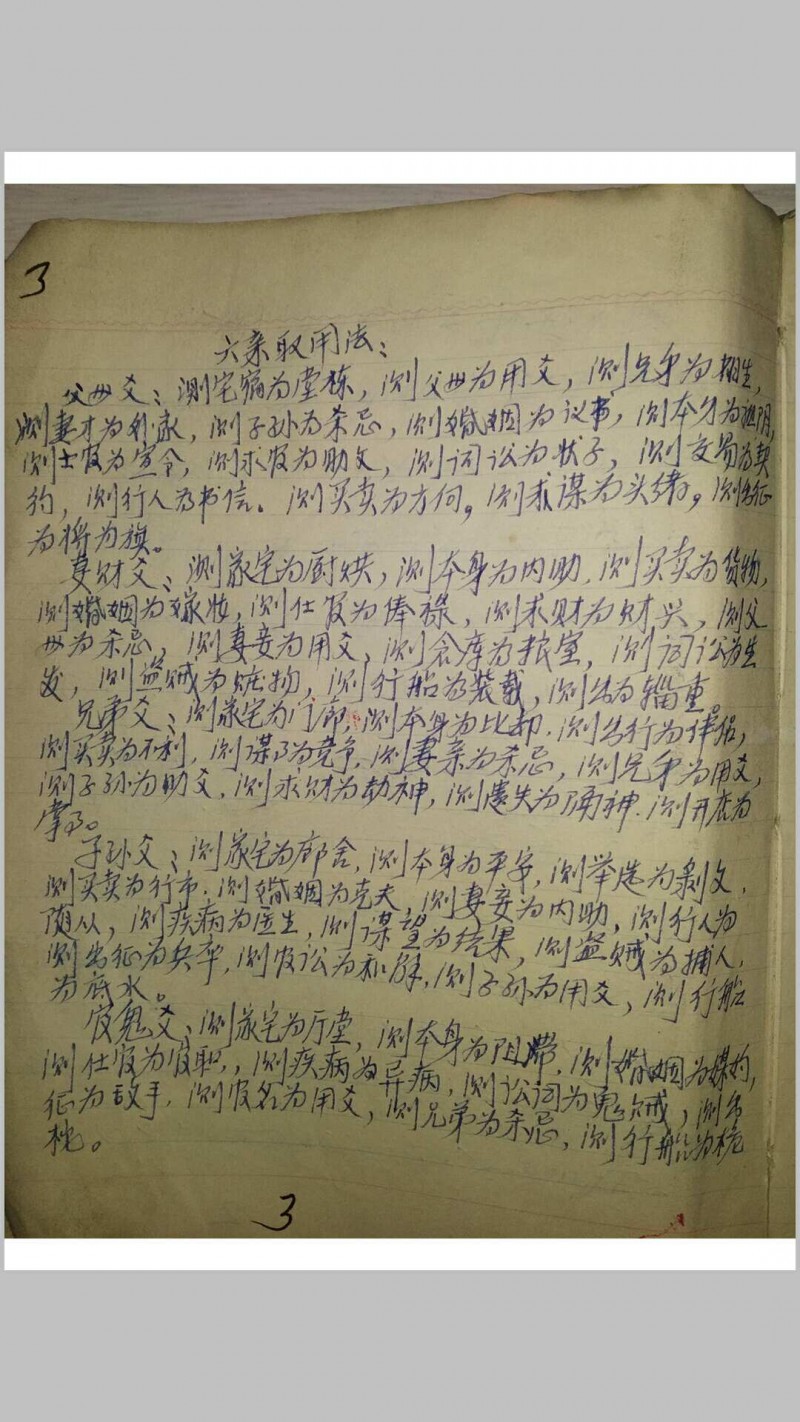 3
六亲取用法:
父母爻:测宅为堂栋,测父母为用爻,测兄弟为相生,
测妻才为外家,测子孙为杀忌,测婚姻为议书,测本身为祖阴,
测士官为宣令,测求官为助文,测词讼为状子,测交易为契
约,测行人为书信。测买卖为方向,测求谋为头绪,测出征
为将为旗。
妻财爻:测家宅为厨灶,测本身为内助,测买卖为货物,
测婚姻为嫁妆,测仕官为俸禄,测求财为财兴,测父
母为杀忌,测妻妾为用爻,测仓库为粮室,测词讼为生
发,测盗贼为赃物,测行船为装载,测出为辎重。
兄弟爻:测家宅为门廊,测本身为比却,测出行为伴侣,
测买卖为不利,测谋事为竞争,测妻亲为杀忌,测兄弟为用爻,
测子孙为助爻,测求财为劫神,测遗失为神.测开店为
掌事。
子孙爻:测家宅为廊舍,测本身为平安,测举选为剥文,
测买卖为行市.测婚姻为克夫,测妻妾为内助,测行人为
随从,测疾病为医生,测谋望为结果,测盗贼为捕人,
测出征为兵卒,测官讼为和解,测子孙为用爻,测行船
为底水。
官鬼爻:测家宅为厅堂,测本身为阻滞,测婚姻为媒妁,
测仕官为官职,测疾病为异病,测讼词为鬼贼,测出
征为敌手,测官名为用爻,测兄弟为杀忌,测行船为桅
桄。
3